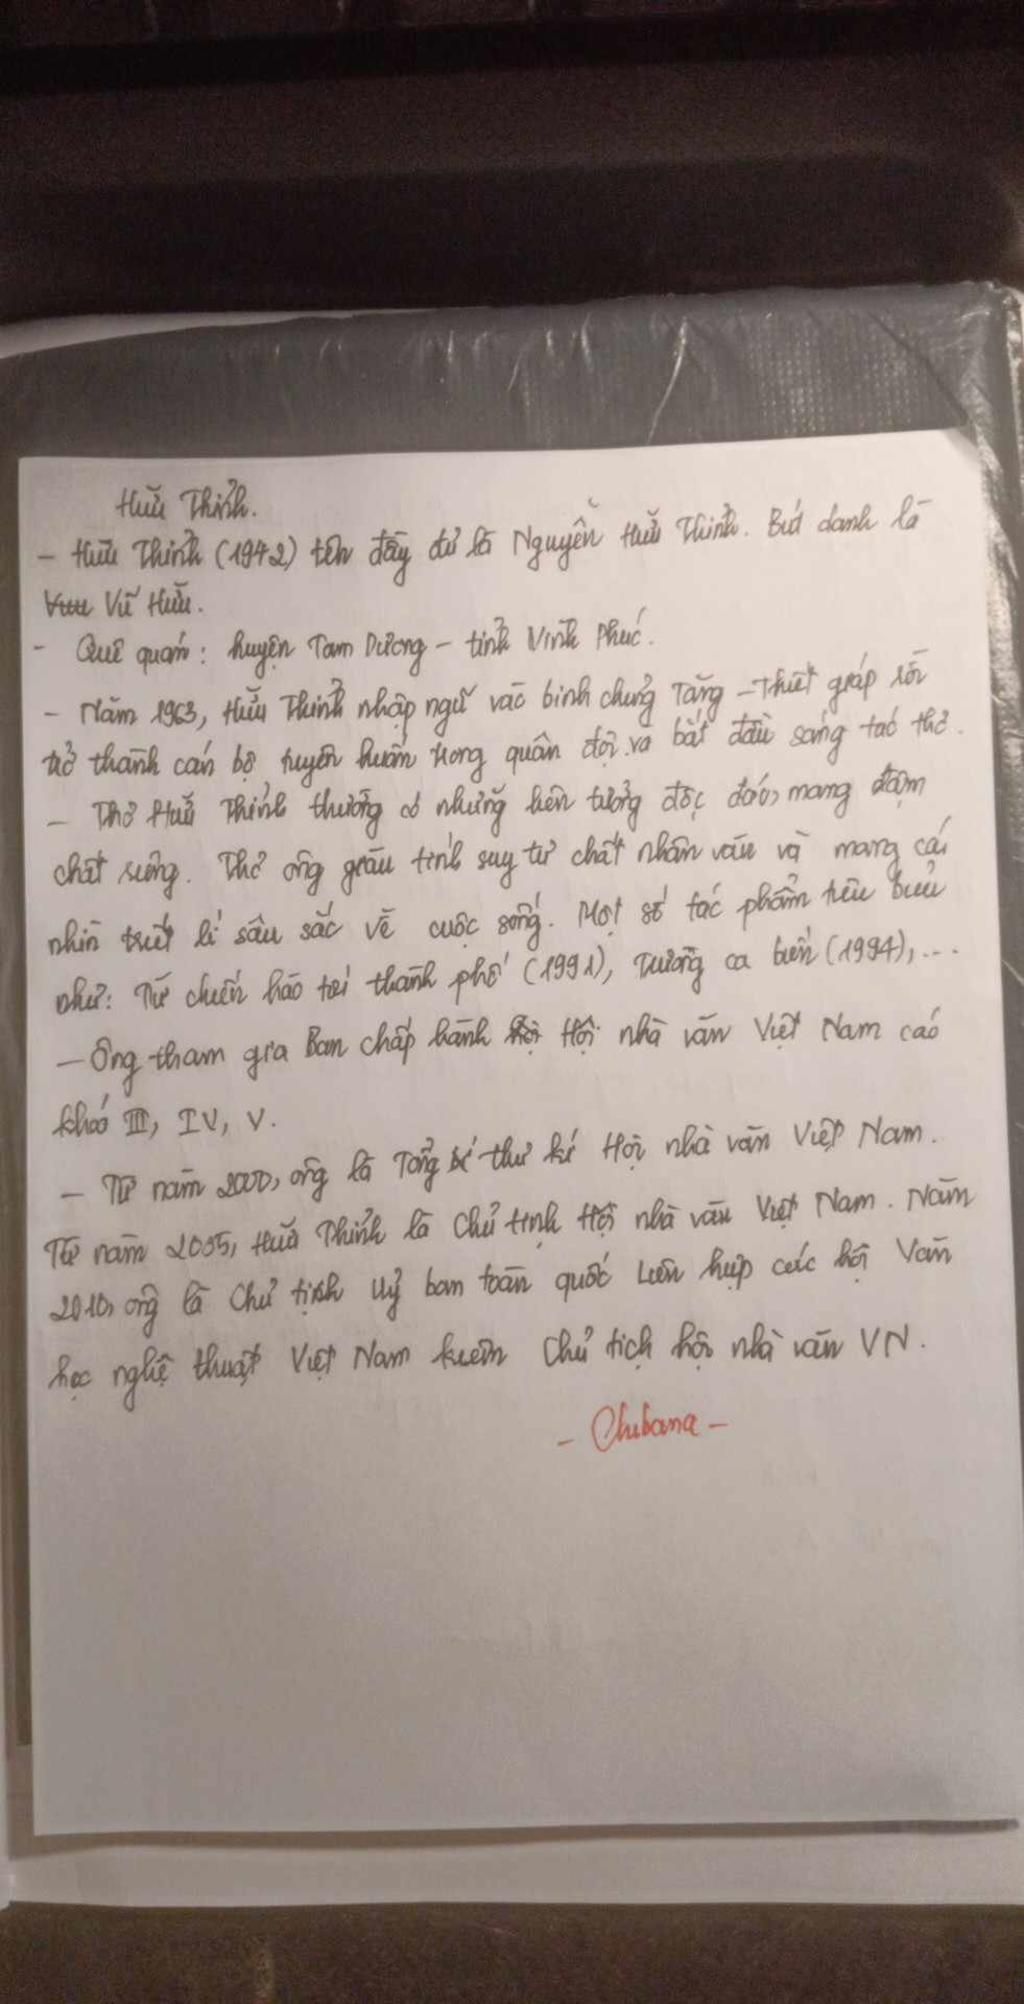 Hữu Thỉnh.
- Hữu Thỉnh (1942) tên đầy đủ là Nguyễn Hữu Thỉnh. Bút danh là
Vũ Hữu.
- Quê quán: huyện Tam Dương - tỉnh Vĩnh Phúc.
- Năm 1963, Hữu Thỉnh nhập ngũ vào binh chủng Tăng - Thiết giáp rồi
trở thành cán bộ tuyên huấn trong quân đội và bắt đầu sáng tác thơ.
- Thơ Hữu Thỉnh thường có những liên tưởng độc đáo, mang đậm
chất riêng. Thơ ông giàu tính suy tư chất nhân văn và mang cái
nhìn triết lí sâu sắc về cuộc sống. Một số tác phẩm tiêu biểu
như: Từ chiến hào tới thành phố (1991), Trường ca biển (1994),...
- Ông tham gia Ban chấp hành Hội nhà văn Việt Nam các
khoá III, IV, V.
- Từ năm 2000, ông là Tổng thư kí Hội nhà văn Việt Nam.
Từ năm 2005, Hữu Thỉnh là Chủ tịnh Hội nhà văn Việt Nam. Năm
2010, ông là Chủ tịch Uỷ ban toàn quốc Liên hiệp các hội Văn
học nghệ thuật Việt Nam kiêm Chủ tịch hội nhà văn VN.
- Chibana -